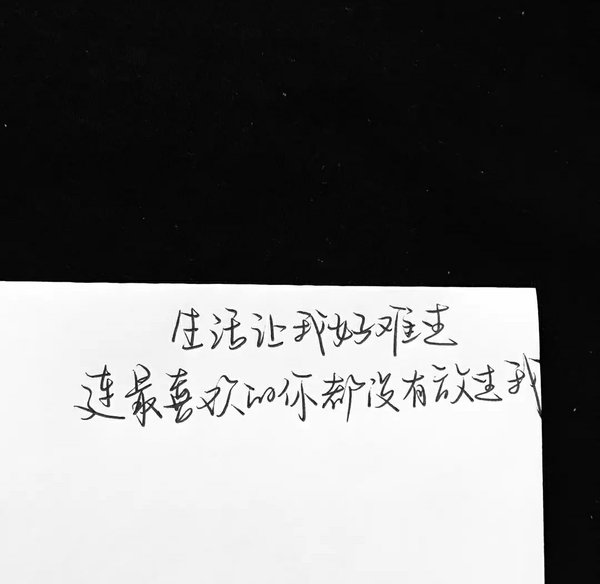 生活让我好难过
连最喜欢的你都没有放过我